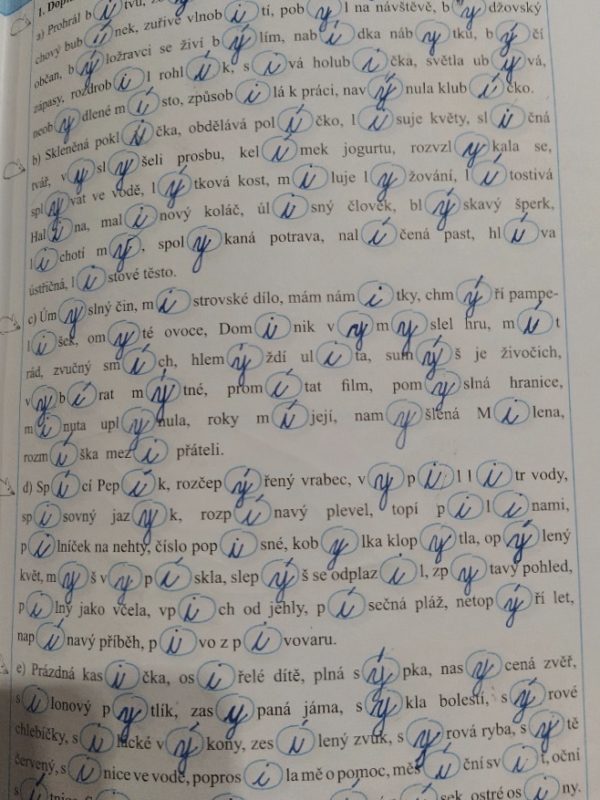 1. Dopl
a) Prohrál bitvu,
chový bublinek, zuřivě vlnobití, pobyl na návštěvě, bydžovský
občan, býložravci se živí býlím, nabídka nábytku, býčí
zápasy, rozdrobil rohlík, sivá holubička, světla ubývá,
neobydlené místo, způsobilá k práci, navýnula klubíčko.
b) Skleněná poklička, obdělává políčko, lisuje květy, slíčná
tvář, vyslyšeli prosbu, kelímek jogurtu, rozvzlykala se,
splývat ve vodě, lýtková kost, miluje lyžování, lítostivá
Halina, malinový koláč, úlisný člověk, blýskavý šperk,
lichotí mý, spolykaná potrava, nalíčená past, hlíva
ústřičná, listové těsto.
c) Úmyslný čin, mistrovské dílo, mám námitky, chmýří pampe-
lišek, omyté ovoce, Dominik vymyslel hru, mít
rád, zvučný smích, hlemýždí ulita, sumýš je živočich,
vybírat mýtné, promítat film, pomyslná hranice,
minuta uplynula, roky míjejí, namyšlená Milena,
rozmíška mezi přáteli.
d) Spící Pepík, rozčepýřený vrabec, vypil litr vody,
spisovný jazyk, rozpínavý plevel, topí pilinami,
pilníček na nehty, číslo popisné, kobylka klopýtla, opylený
květ, myš vypískla, slepýš se odplazil, zpytavý pohled,
pilný jako včela, vpich od jehly, písečná pláž, netopýří let,
napínavý příběh, pivo z pivovaru.
e) Prázdná kasička, osiřelé dítě, plná sýpka, nasycená zvěř,
silonový pytlík, zasypaná jáma, sykla bolestí, sýrové
chlebíčky, silácké výkony, zesílený zvuk, syrová ryba, sytě
červený, sinice ve vodě, poprosila mě o pomoc, měsíční svit, oční